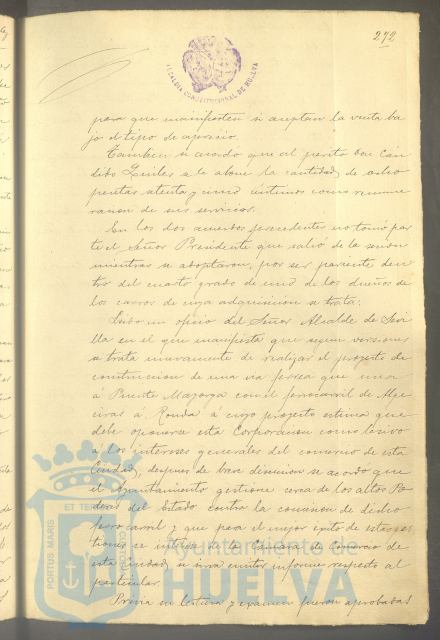 272
ALCALDIA CONSTITUCIONAL DE HUELVA
para que manifiesten si aceptan la venta ba
jo el tipo de aprecio.
Tambien se acordó que al perito Don Cán
dido se le abone la cantidad de ocho
pesetas setenta y cinco céntimos como remune
racion de sus servicios.
En los dos acuerdos precedentes no tomó par
te el Señor Presidente que salió de la sesion
mientras se adoptaron, por ser pariente den
tro del cuarto grado de uno de los dueños de
los carros de cuya adquisicion se trata.
Leido un oficio del Señor Alcalde de Sevi
lla en el que manifiesta que segun versiones
se trata nuevamente de realizar el proyecto de
construccion de una via ferrea que una
á Puente Mayorga con el ferrocarril de Alge
ciras á Ronda á cuyo proyecto estima que
debe oponerse esta Corporacion como lesivo
á los intereses generales del comercio de esta
Ciudad, despues de breve discusion se acordó que
el Ayuntamiento gestione cerca de los altos Po
deres del Estado contra la concesion de dicho
ferrocarril y que para el mejor éxito de estas ges
tiones se interese de la Cámara de Comercio de
esta ciudad se sirva emitir informe respecto al
particular.
Previa su lectura y examen fueron aprobadas
PORTUS MARIS
ET TERRAE
CUSTODIA
Ayuntamiento de
HUELVA